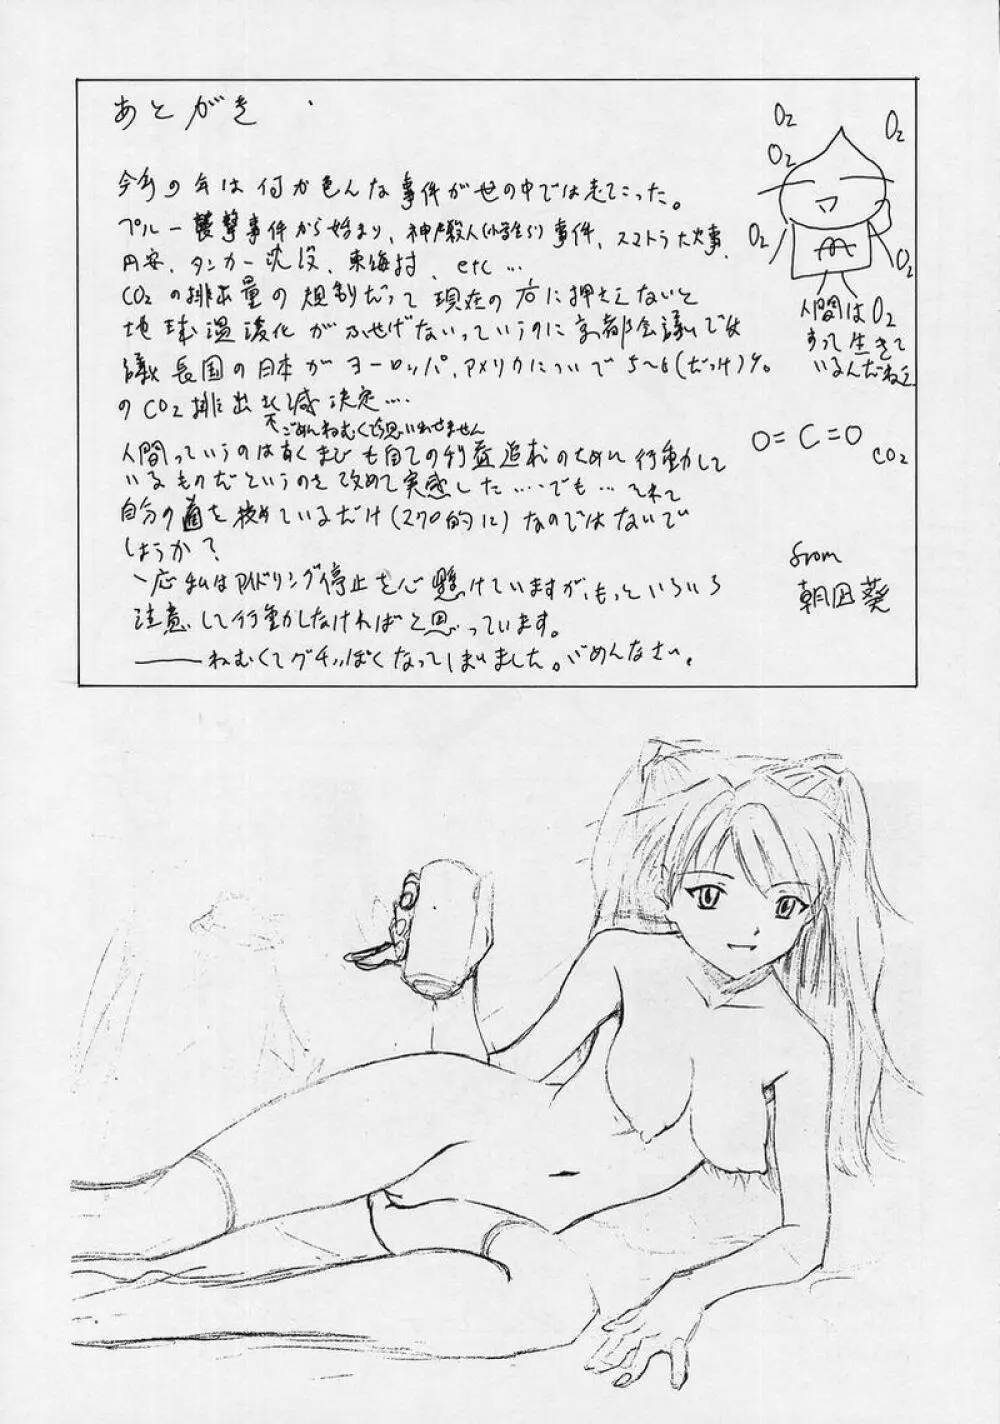 あとがき
今年の年は何か色んな事件が世の中では起こった。
ペルー襲撃事件から始まり、神戸殺人(小学生ら)事件、スマトラ大火事、
円安、タンカー沈没、東海村、etc…
CO2の排出量の規制だって現在の 右に押さえないと
地球温暖化がふせげないっていうのに京都会議では
議長国の日本がヨーロッパ、アメリカについで5~6(だっけ)%。
のCO2排出 減決定…
ごめんねむくて思い出せません
人間っていうのは 自 の利益追求のために行動して
いるものだというのを改めて実感した……でも…それで
自分の首を絞めているだけ( 的に)なのではないで
しょうか?
一応私はアイドリング停止を心懸けていますが、もっといろいろ
注意して行動しなければと思っています。
――ねむくてグチっぽくなってしまいました。ごめんなさい。
O2
O2
O2
O2
O2
人間はO2
すって生きて
いるんだねえ
O=C=O
CO2
from
朝田葵